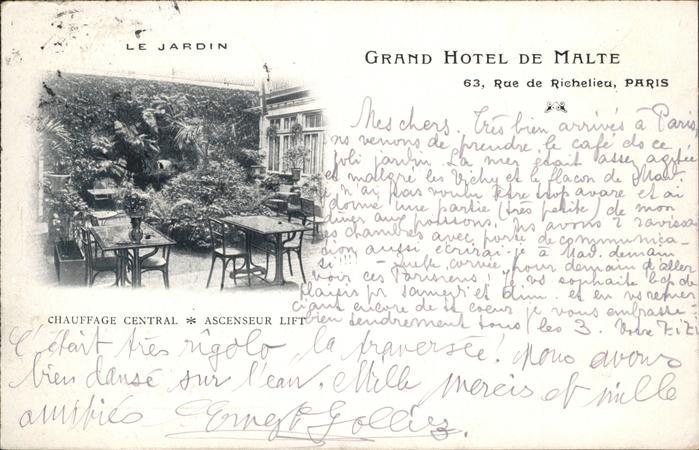 LE JARDIN
GRAND HOTEL DE MALTE
63, Rue de Richelieu, PARIS
Mes chers. Très bien arrivés à Paris
ns venons de prendre le café ds ce
joli jardin. La mer était assez agitée
et malgré les Vichy et le flacon de
je n'ai pas voulu être trop avare et ai
donné une partie (très petite) de mon
dîner aux poissons. Ns avons 2 ravissan
tes chambres avec porte de communica-
tion aussi écrirai-je à Mad. demain
si !!! Quelle corvée, pour demain d'aller
voir ces Parisiens! Je vs souhaite bcp de
plaisir pr samedi et dim. et en vs remer-
ciant encore de tt coeur je vous embrasse
bien tendrement tous les 3. Votre ZiZi
CHAUFFAGE CENTRAL * ASCENSEUR LIFT
C'était très rigolo, la traversée! Nous avons
bien dansé sur l'eau. Mille mercis et mille
amitiés Ernest Golliez.